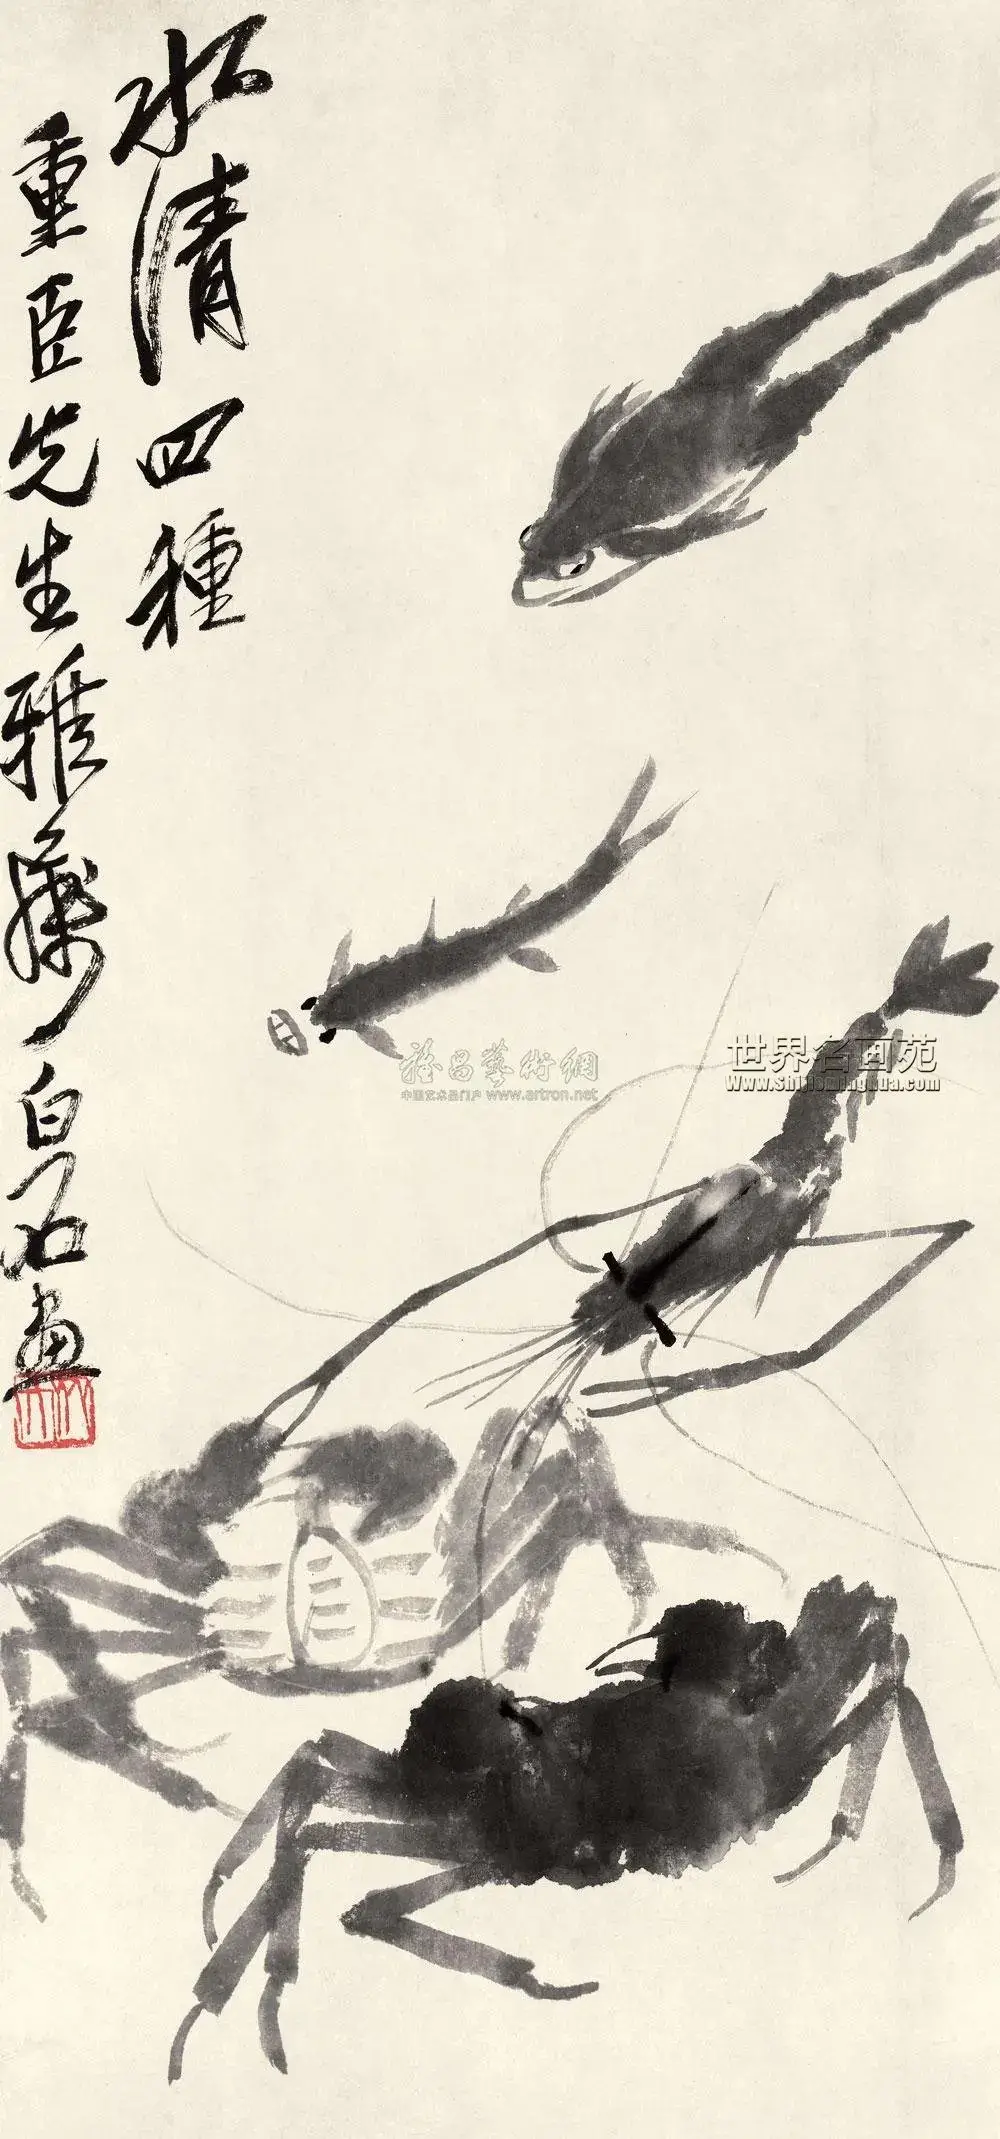 水清四種
重臣先生雅 白石畫
世界名画苑
Www.shijieminghua.com
雅昌藝術網
中国艺术品门户 www.artron.net